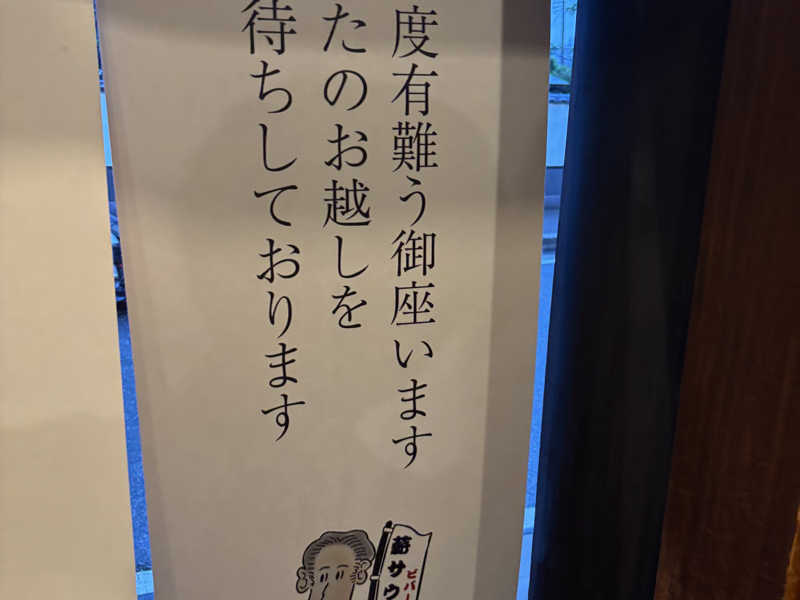 度有難う御座います
たのお越しを
待ちしております
サウ
ビバ